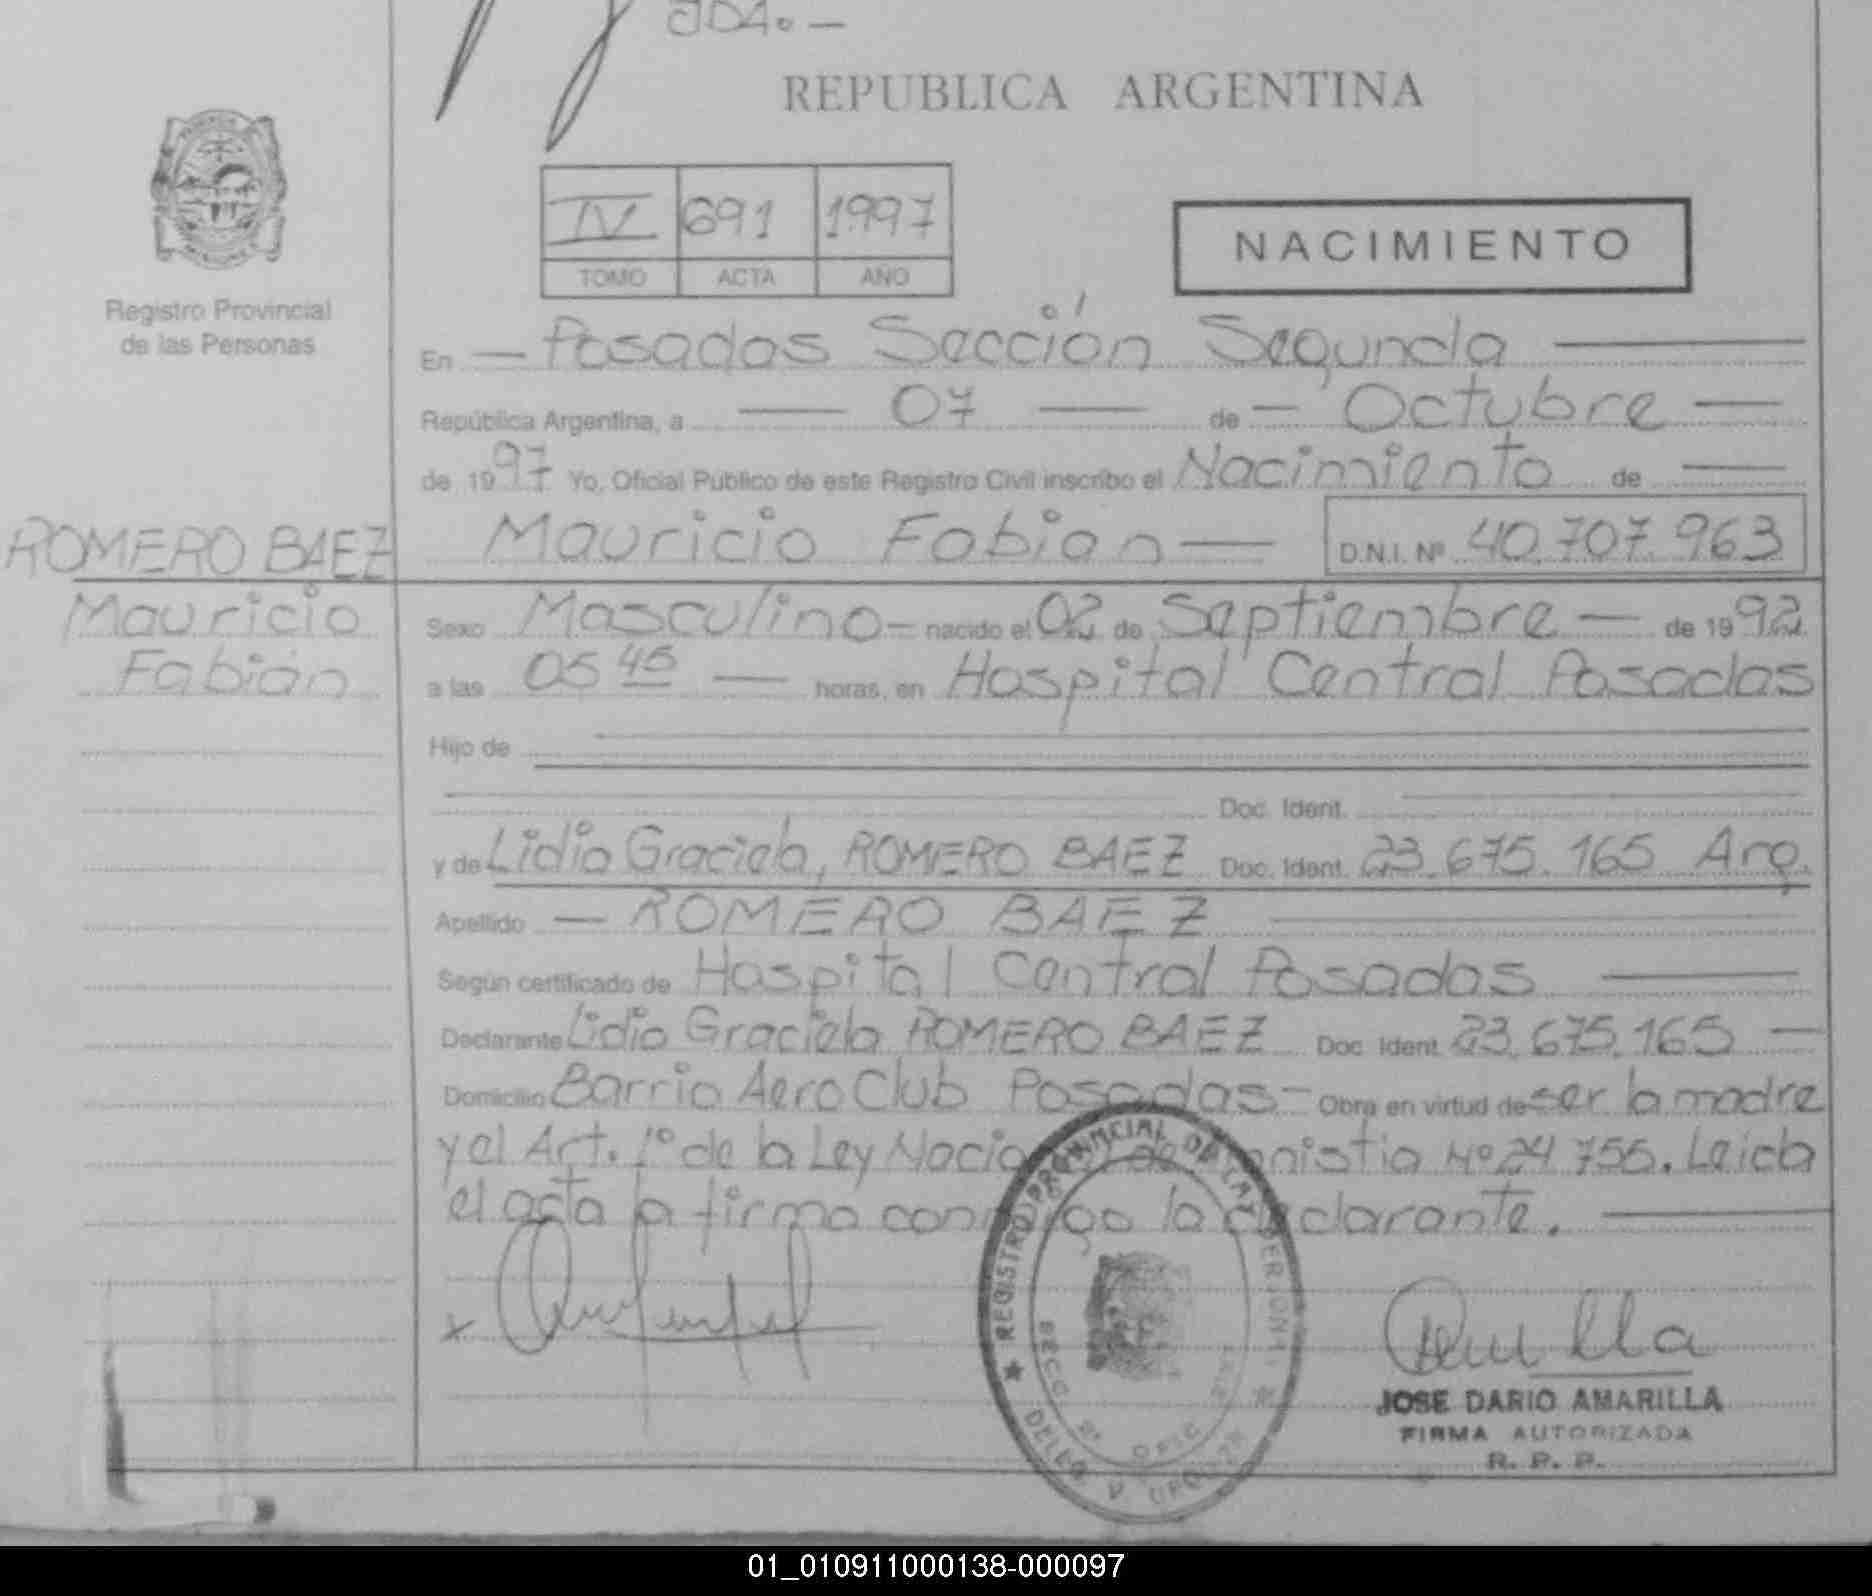 REPUBLICA ARGENTINA
IV 691 1997
TOMO ACTA AÑO
NACIMIENTO
Registro Provincial
de las Personas
En — Posadas Sección Segunda —
República Argentina, a — 07 — de — Octubre —
de 1997 Yo, Oficial Público de este Registro Civil inscribo el Nacimiento de —
Mauricio Fabián — D.N.I. Nº 40.707.963
ROMERO BAEZ
Mauricio
Fabián
Sexo Masculino — nacido el 02 de Septiembre — de 1992
a las 05 45 — horas, en Hospital Central Posadas
Hijo de
Doc. Ident.
y de Lidia Graciela, ROMERO BAEZ Doc. Ident. 23.675.165 Arg.
Apellido — ROMERO BAEZ
Según certificado de Hospital Central Posadas —
Declarante Lidia Graciela ROMERO BAEZ Doc. Ident. 23.675.165 —
Domicilio Barrio Aero Club Posadas — Obra en virtud de ser la madre
y el Art. 1º de la Ley Nacional de Amnistia Nº 24 755. Leída
el acta la firma conmigo la declarante. —
REGISTRO PROVINCIAL DE LAS PERSONAS
SECC 2ª
JOSE DARIO AMARILLA
FIRMA AUTORIZADA
R. P. P.
01_010911000138-000097